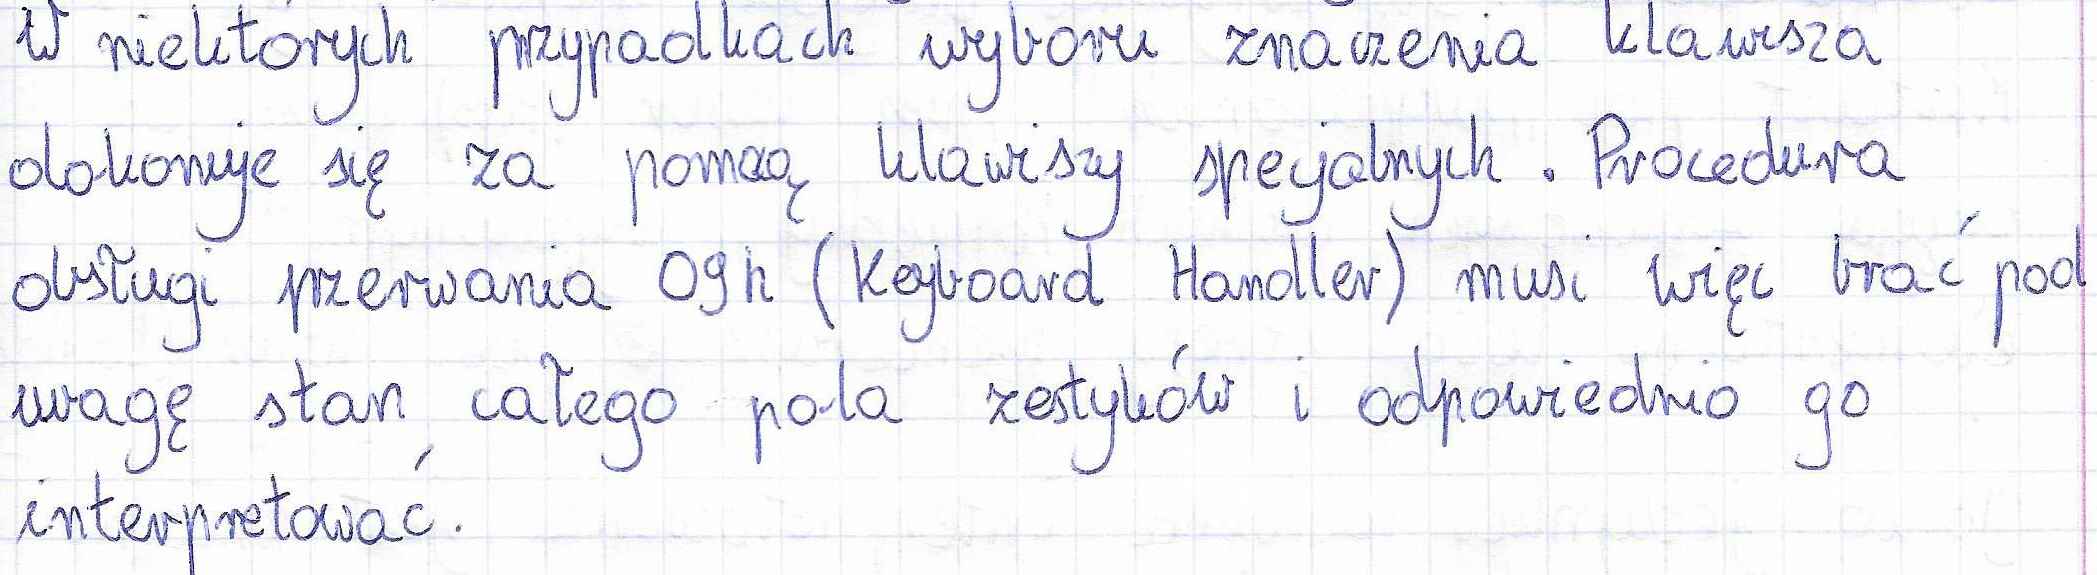 W niektórych przypadkach wyboru znaczenia klawisza
dokonuje się za pomocą klawiszy specjalnych. Procedura
obsługi przerwania 09h (Keyboard Handler) musi więc brać pod
uwagę stan całego pola zestyków i odpowiednio go
interpretować.